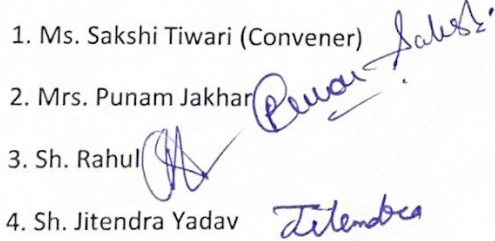 1. Ms. Sakshi Tiwari (Convener) Sakshi
2. Mrs. Punam Jakhar
3. Sh. Rahul
4. Sh. Jitendra Yadav Jitendra